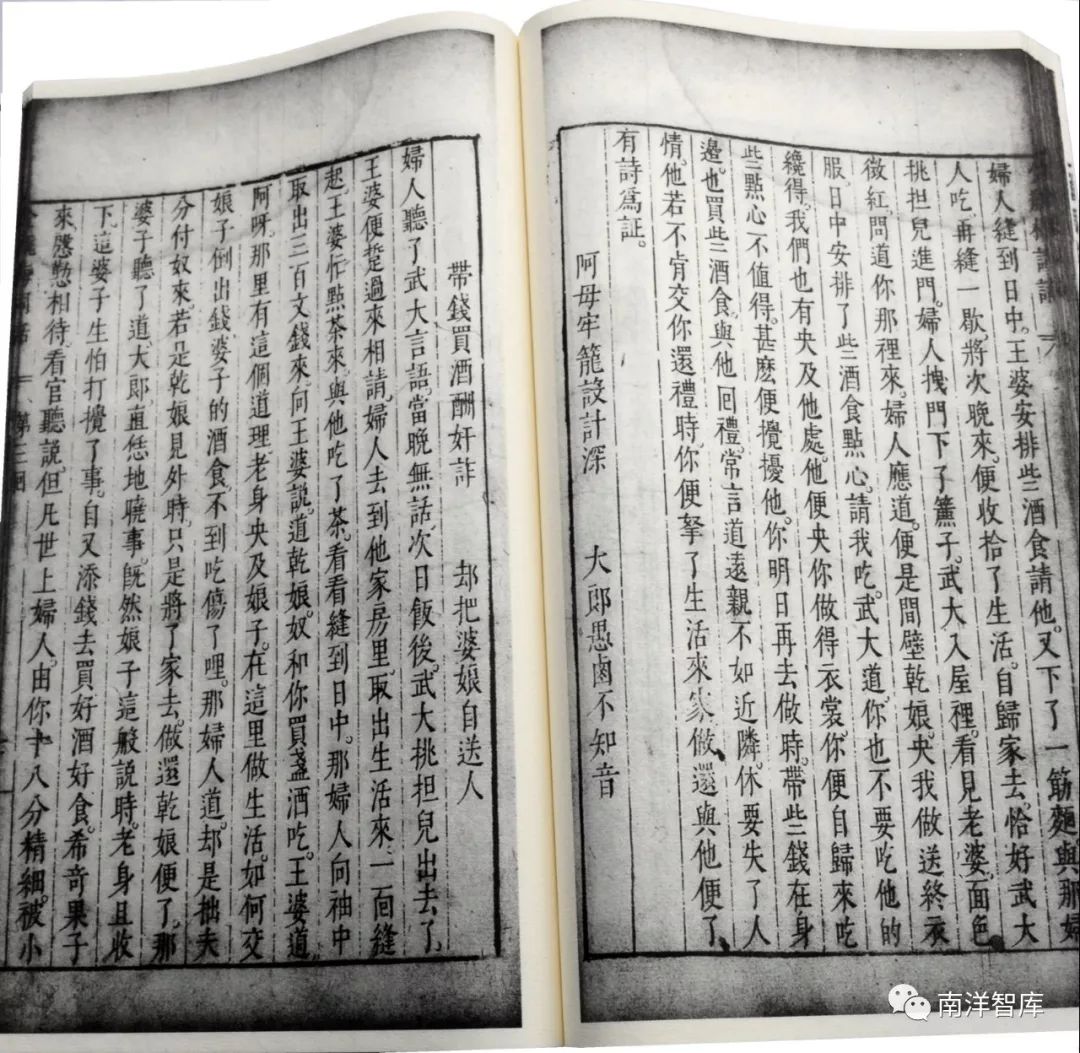 婦人縫到日中。王婆安排些酒食請他。又下了一筯麵與那婦
人吃。再縫一歇。將次晚來。便收拾了生活。自歸家去。恰好武大
挑担兒進門。婦人拽門下了簾子。武大入屋裡。看見老婆面色
微紅。問道你那裡來。婦人應道。便是間壁乾娘。央我做送終衣
服。日中安排了些酒食點心。請我吃。武大道。你也不要吃他的
纔得。我們也有央及他處。他便央你做得衣裳。你便自歸來吃
些點心。不值得。甚麽便攪擾他。你明日再去做時。帶些錢在身
邊。也買些酒食。與他回禮。常言道遠親不如近隣。休要失了人
情。他若不肯交你還禮時。你便拏了生活來家做還與他便了
有詩爲証。
阿母牢籠設計深 大郎愚鹵不知音
帶錢買酒酬奸詐 却把婆娘自送人
婦人聽了武大言語。當晚無話。次日飯後。武大挑担兒出去了。
王婆便踅過來相請。婦人去到他家房里。取出生活來。一面縫
起。王婆忙點茶來。與他吃了茶。看看縫到日中。那婦人向袖中
取出三百文錢來。向王婆說。道乾娘。奴和你買盞酒吃。王婆道
阿呀。那里有這個道理。老身央及娘子。在這里做生活。如何交
娘子倒出錢。婆子的酒食。不到吃傷了哩。那婦人道。却是拙夫
分付奴來。若是乾娘見外時。只是將了家去。做還乾娘便了。那
婆子聽了道。大郎直恁地曉事。旣然娘子這般說時。老身且收
下。這婆子生怕打攪了事。自又添錢去買好酒好食。希奇果子
來。慇懃相待。看官聽說。但凡世上婦人。由你十八分精細。被小
第三回
南洋智库